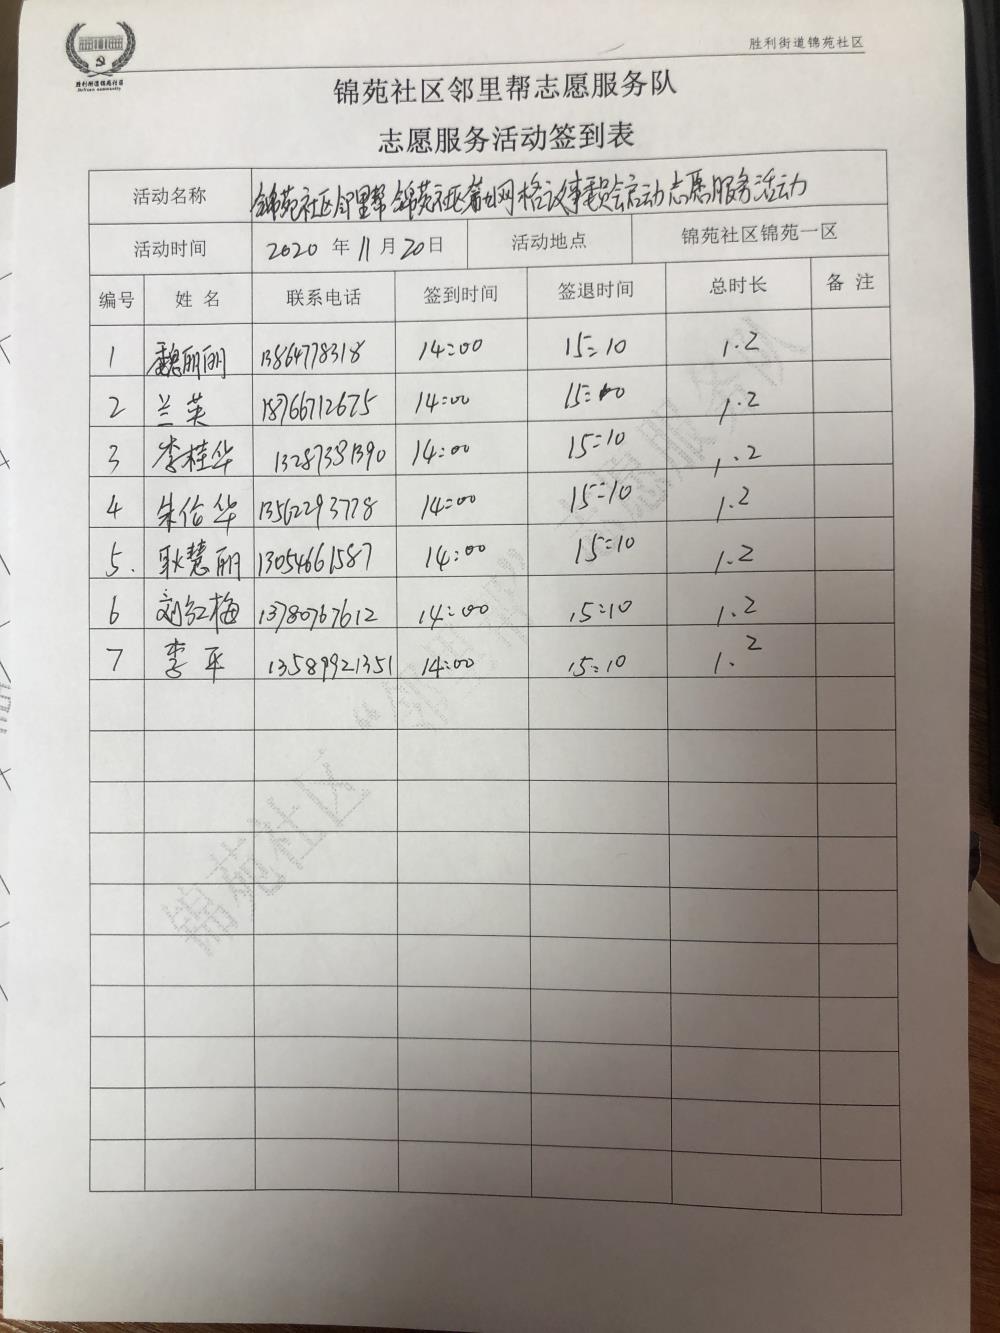 胜利街道锦苑社区
胜利街道锦苑社区
锦苑社区邻里帮志愿服务队
志愿服务活动签到表
活动名称 锦苑社区邻里帮锦苑社区 网格议事委员会启动志愿服务活动
活动时间 2020 年 11 月 20 日 活动地点 锦苑社区锦苑一区
编号 姓 名 联系电话 签到时间 签退时间 总时长 备 注
1 魏丽丽 13864778318 14:00 15:10 1.2
2 兰英 18766712675 14:00 15: 1.2
3 李桂华 13287381390 14:00 15:10 1.2
4 朱伦华 13562293778 14:00 15:10 1.2
5. 耿慧丽 13054661587 14:00 15:10 1.2
6 刘红梅 13780767612 14:00 15:10 1.2
7 李平 13589921351 14:00 15:10 1.2
锦苑社区“邻里帮”志愿服务队